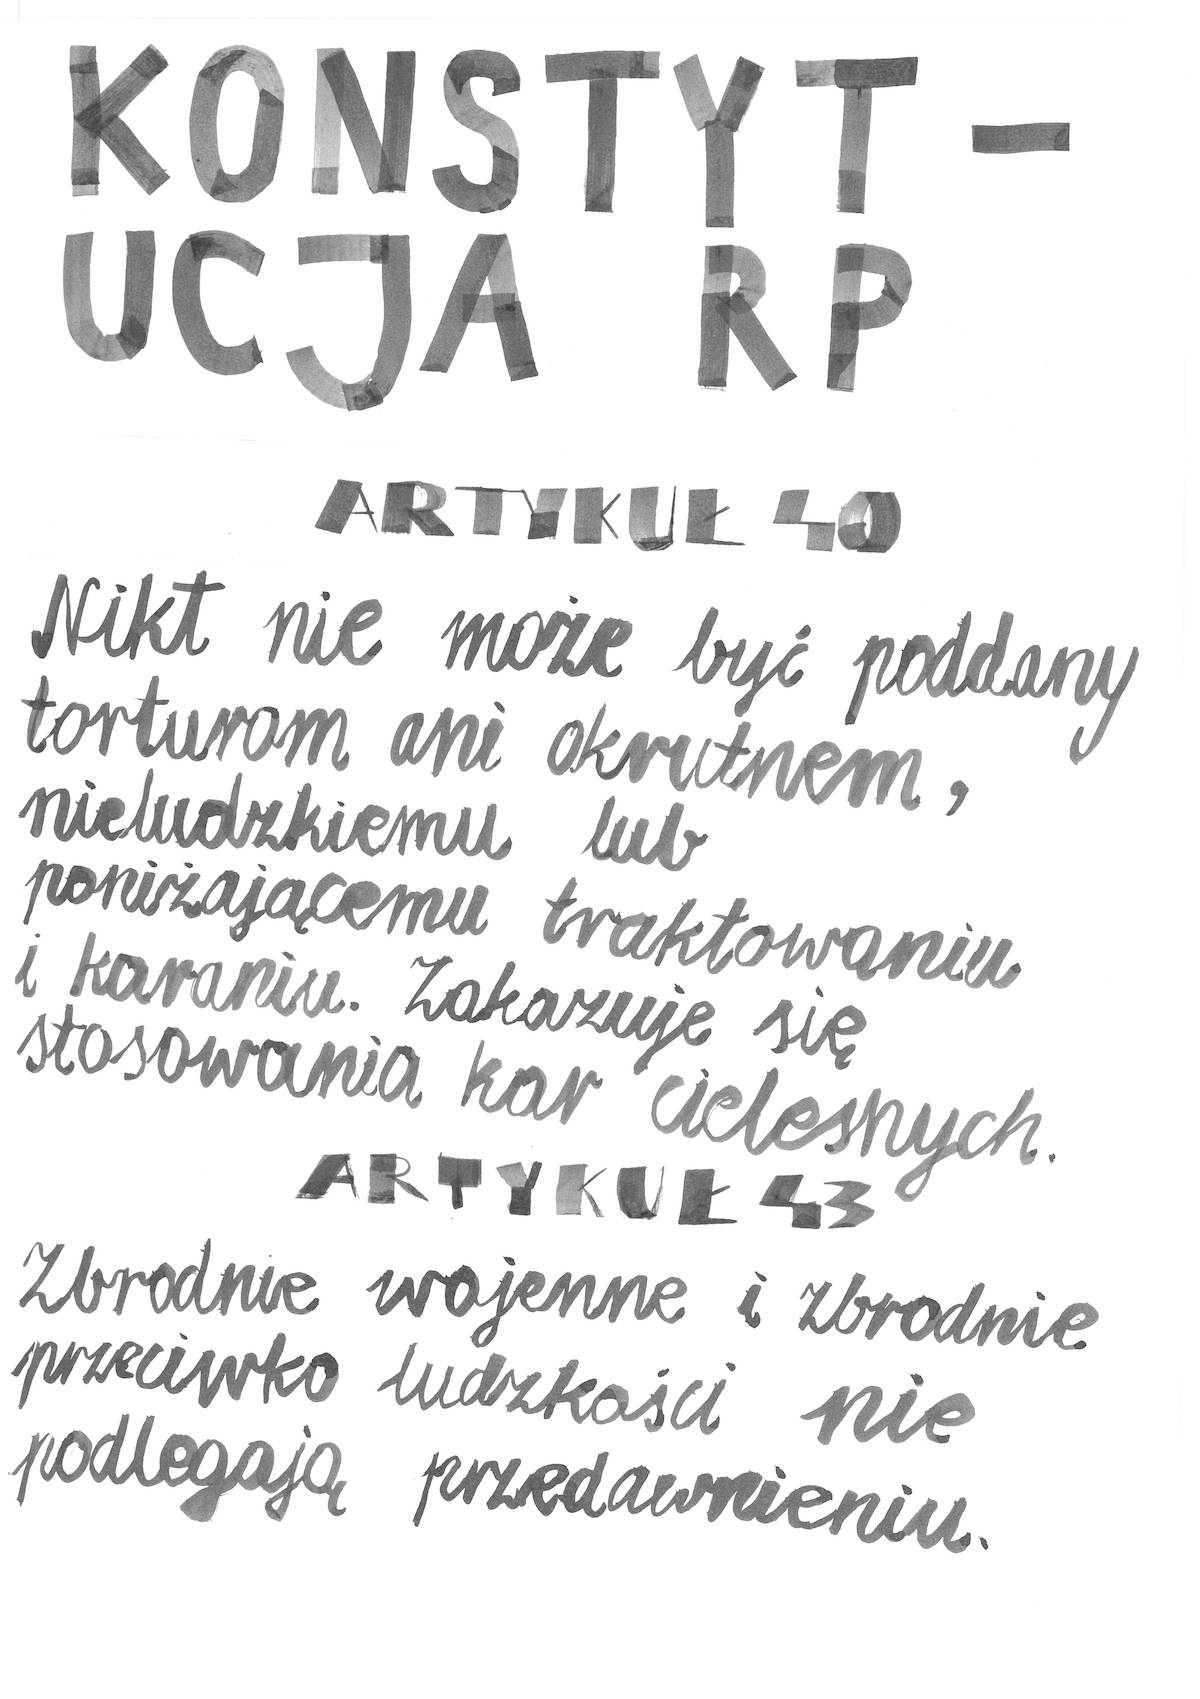 KONSTYT-
UCJA RP
ARTYKUŁ 40
Nikt nie może być poddany
torturom ani okrutnem,
nieludzkiemu lub
poniżającemu traktowaniu
i karaniu. Zakazuje się
stosowania kar cielesnych.
ARTYKUŁ 43
Zbrodnie wojenne i zbrodnie
przeciwko ludzkości nie
podlegają przedawnieniu.